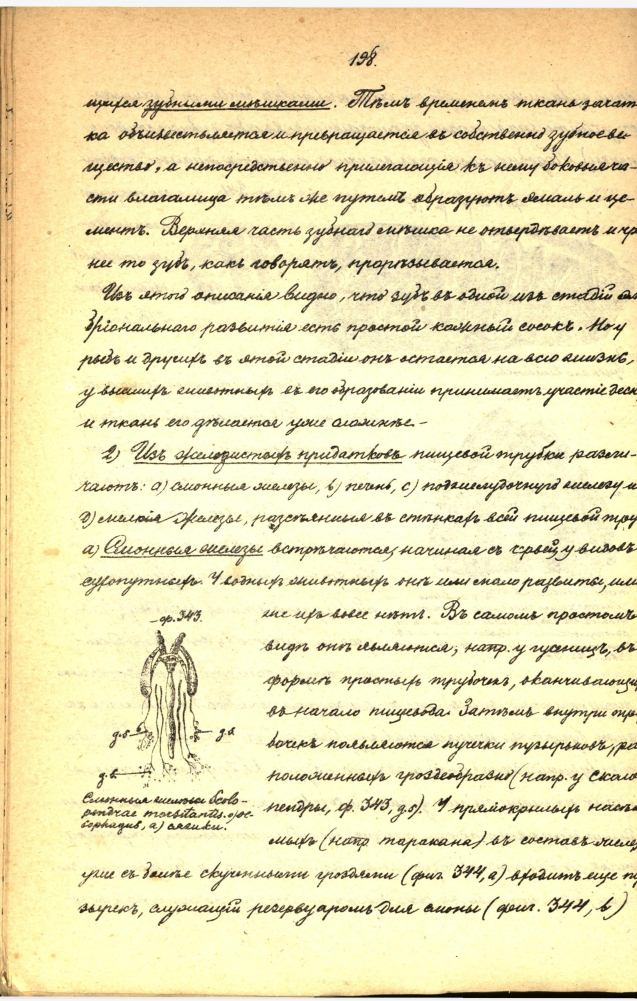 198.
щихся зубными мѣшками. Тѣмъ временемъ ткань зачат
ка объизвествляется и превращается въ собственно зубное ве-
щество, а непосредственно прилегающія къ нему боковыя ча-
сти влагалища тѣмъ же путемъ образуютъ эмаль и це-
ментъ. Верхняя часть зубнаго мѣшка не отвердѣваетъ и чр
нее то зубъ, какъ говорятъ, прорѣзывается.
Изъ этого описанія видно, что зубъ въ одной изъ стадій эм
бріональнаго развитія есть простой кожный сосокъ. Но у
рыбъ и другихъ въ этой стадіи онъ остается на всю жизнь,
у высшихъ животныхъ въ его образованіи принимаетъ участіе десн
и ткань его дѣлается уже сложнѣе.–
2) Изъ железистыхъ придатковъ пищевой трубки разли-
чаютъ: а) слюнныя железы, b) печень, с) поджелудочную железу и
d) мелкія железы, разсѣянныя въ стѣнкахъ всей пищевой тру
а) Слюнныя железы встрѣчаются, начиная съ червей, у видовъ
сухопутныхъ. У водныхъ животныхъ онѣ или мало развиты, или
– ф. 343.
же ихъ вовсе нѣтъ. Въ самомъ простомъ
видѣ онѣ являются, напр. у гусеницъ, въ
формѣ простыхъ трубочекъ, оканчивающи
въ начало пищевода. Затѣмъ внутри тру
бочекъ появляются пучечки пузырьковъ, ра
положенныхъ гроздеобразно (напр. у сколо
пендры, ф. 343, д.s). У прямокрылыхъ насѣ
мыхъ (напр таракана) въ составъ желез
д.s
д.s
д.s.
Слюнныя железы
уже съ болѣе скученными гроздями (фиг. 344, а) входитъ еще пу
зырекъ, служащій резервуаромъ для слюны (фиг. 344, b)